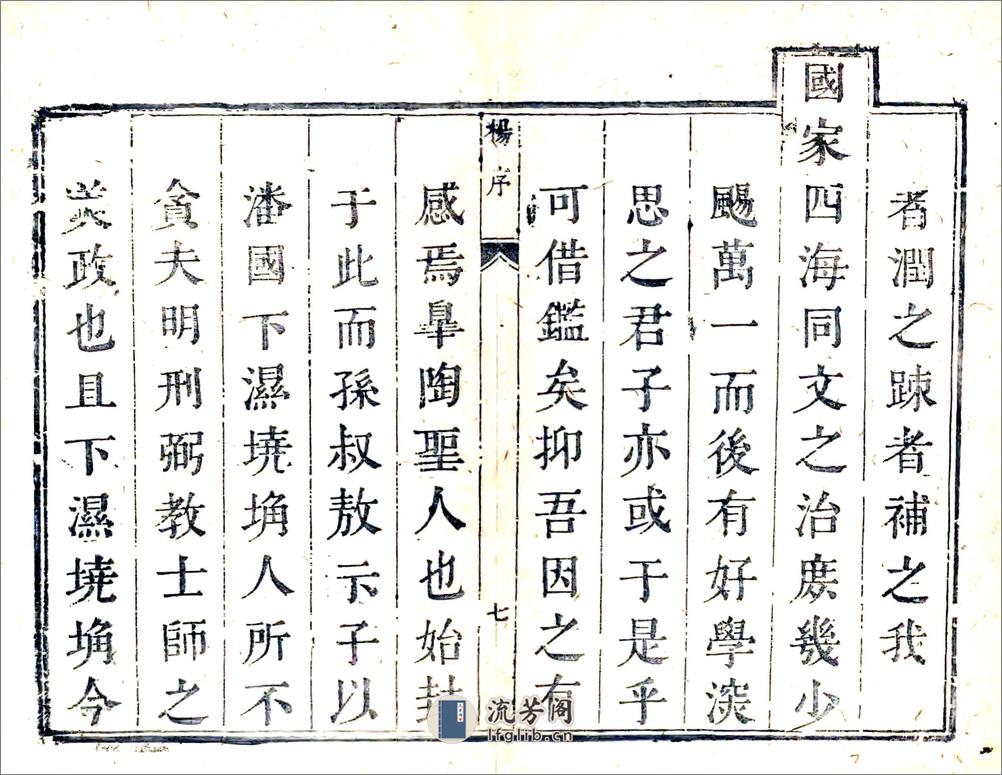 者潤之踈者補之我
國家四海同文之治庶幾少
颺萬一而後有好學深
思之君子亦或于是乎
可借鑑矣抑吾因之有
楊序
七
感焉臯陶聖人也始封
于此而孫叔敖示子以
潘國下濕墝埆人所不
貪夫明刑弼教士師之
美政也且下濕墝埆今
流芳阁
lfglib.cn